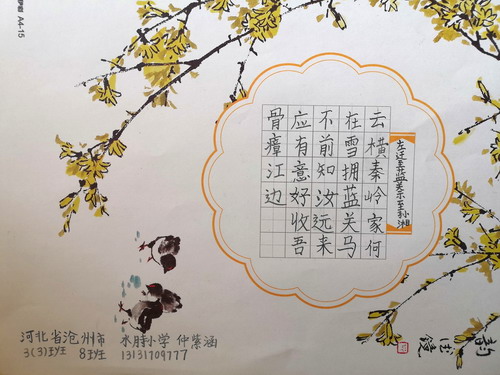 A4-15
左迁至蓝关示至孙湘
云横秦岭家何
在雪拥蓝关马
不前知汝远来
应有意好收吾
骨瘴江边
河北省沧州市 小学 仲紫涵
3(3)班 8班 13131709777